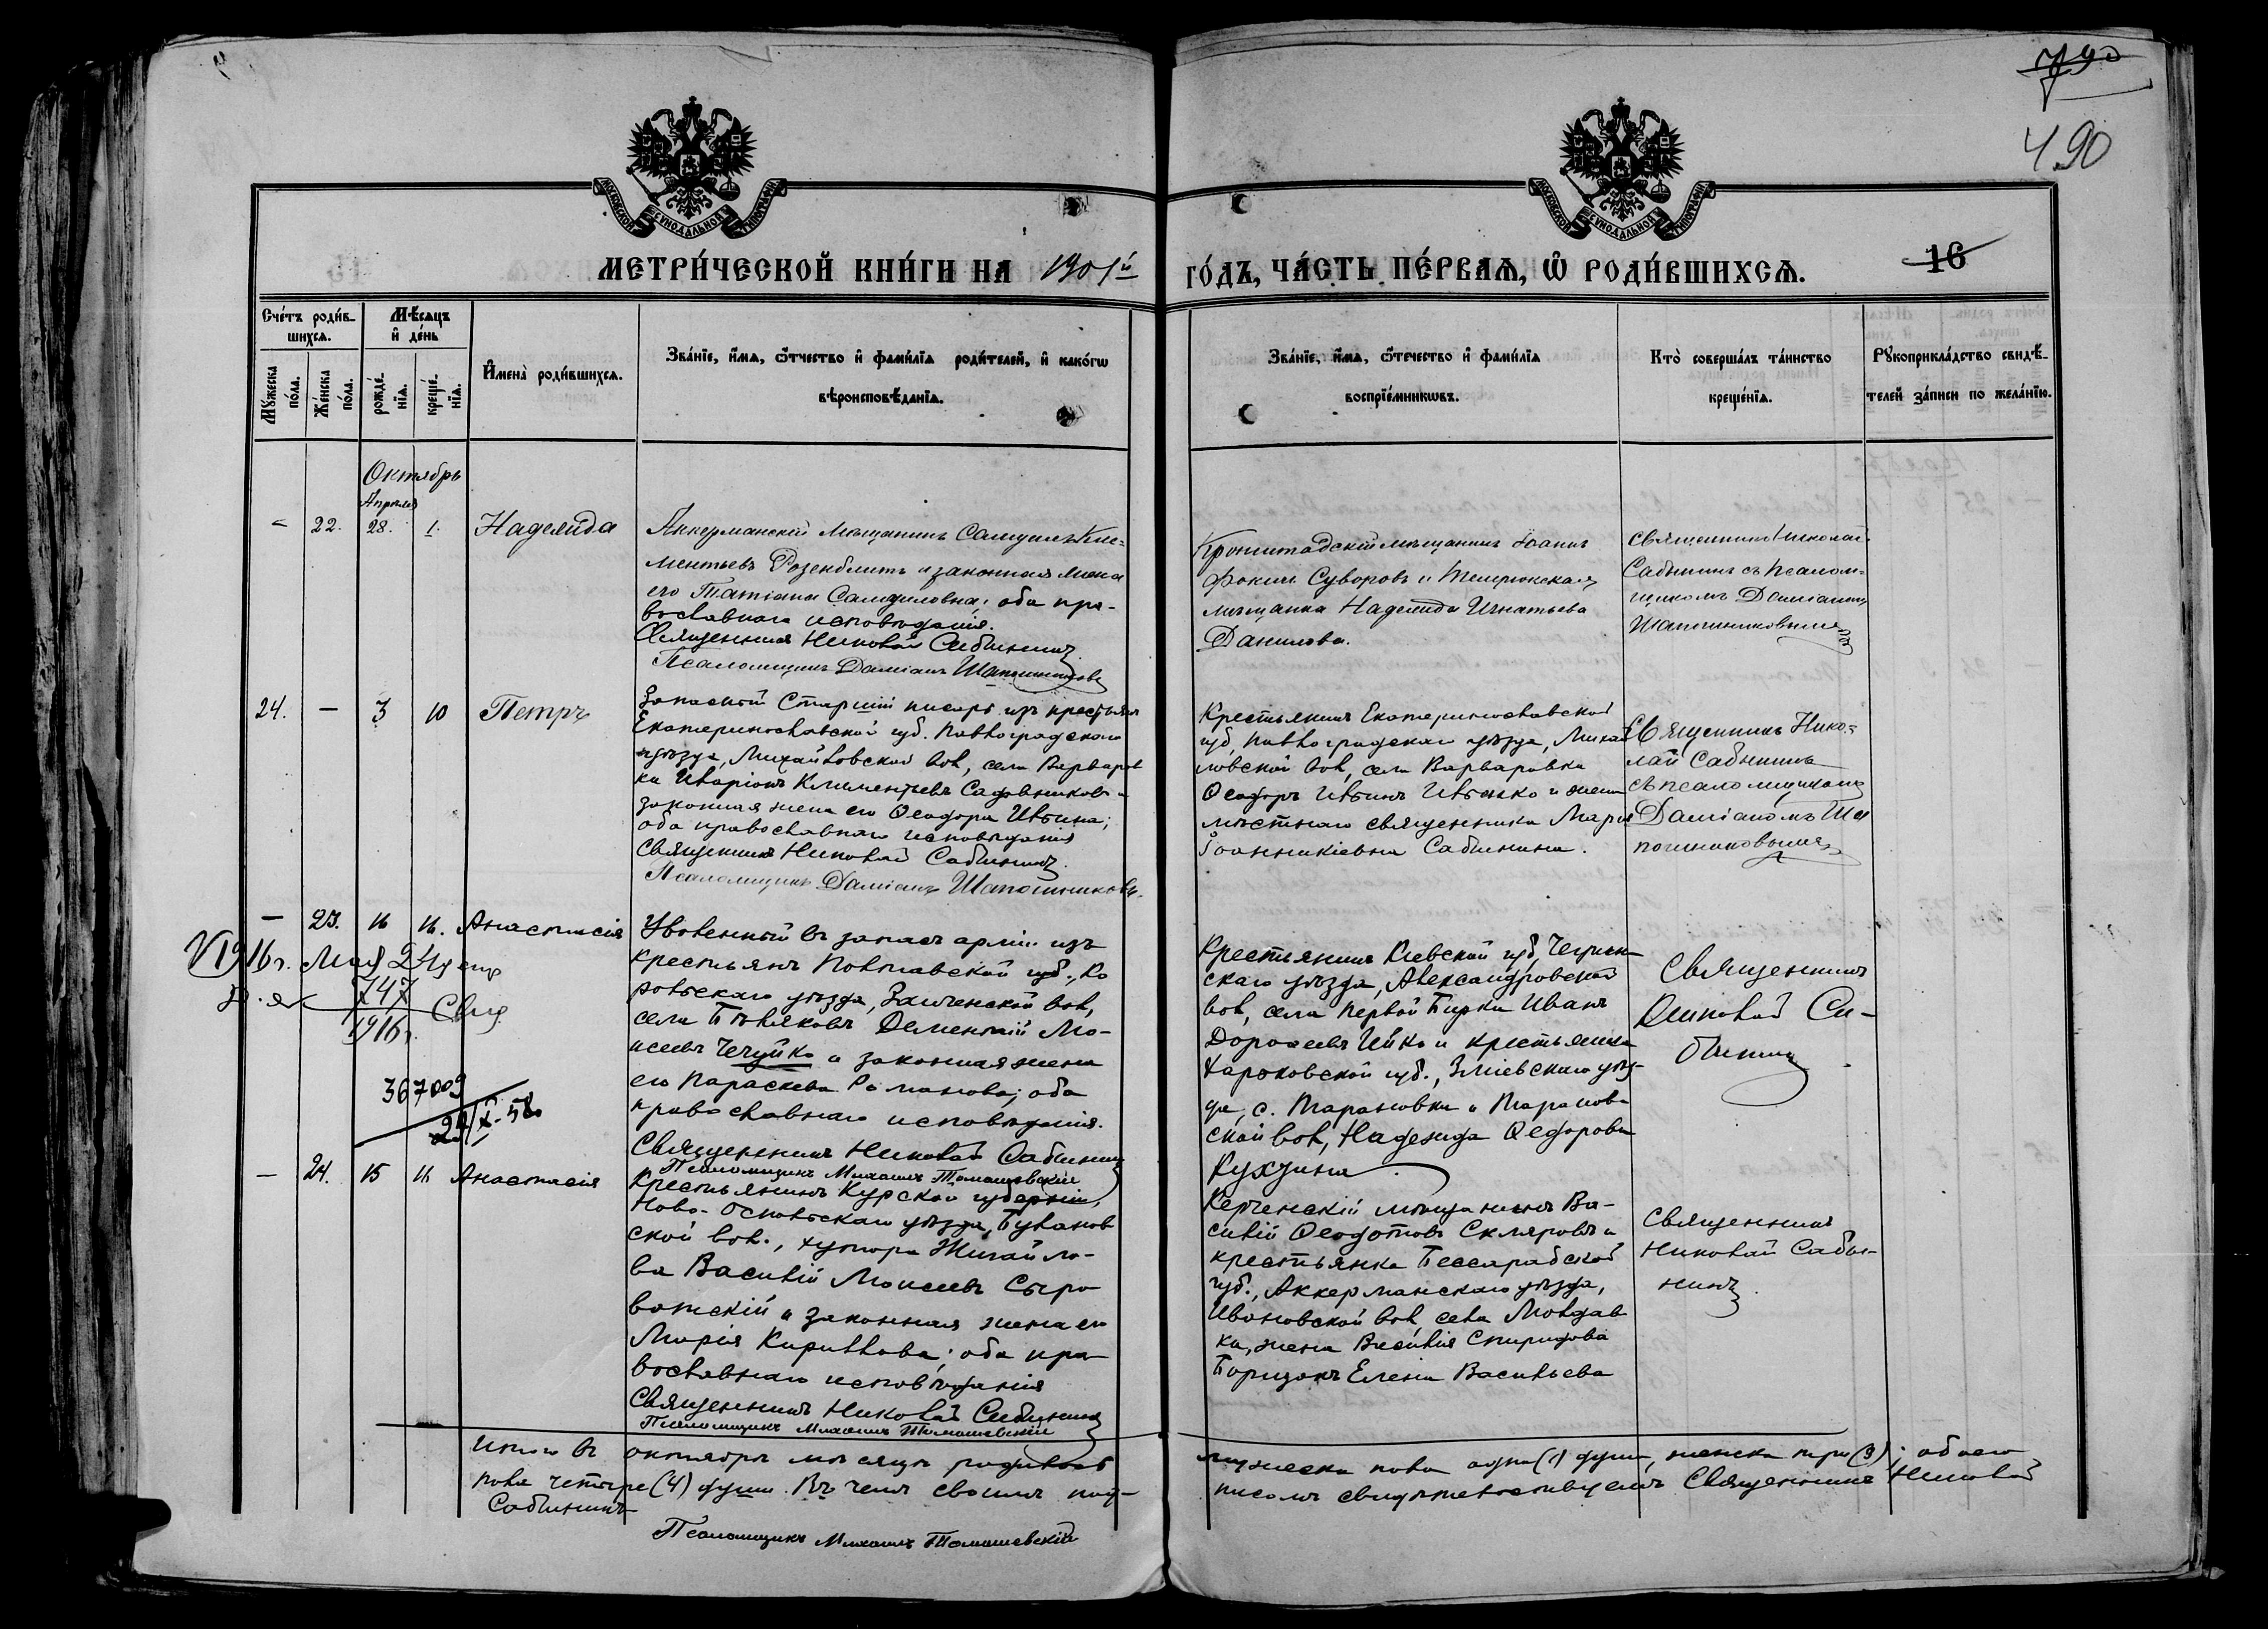 790
490
МОСКОВСКОЙ СѴНОДАЛЬНОЙ ТИПОГРАФІИ
МОСКОВСКОЙ СѴНОДАЛЬНОЙ ТИПОГРАФІИ
МЕТРИ́ЧЕСКОЙ КНИ́ГИ НА 1901й
ГО́ДЪ, ЧА́СТЬ ПЕ́РВАѦ, Ѡ҆ РОДИ́ВШИХСѦ.
16
Сче́тъ роди́в-
шихсѧ.
Мѣ́сѧцъ
и҆ де́нь
Мꙋ́жеска по́ла.
Же́нска по́ла.
рожде́-
нїѧ.
креще́-
нїѧ.
И҆мена̀ роди́вшихсѧ.
Зва́нїе, и҆́мѧ, ѻ҆́тчество и҆ фами́лїѧ роди́телей, и҆ како́гѡ
вѣроисповѣ́данїѧ.
Зва́нїе, и҆́мѧ, ѻ҆́течество и҆ фами́лїѧ
воспрїе́мникѡвъ.
Кто̀ соверша́лъ та́инство
креще́нїѧ.
Рꙋкоприкла́дство свидѣ́-
телей за́писи по жела́нїю.
Октябрь
Апрѣля
22. 28. 1. Надежда
Аккерманскій мѣщанинъ Самуилъ Кли-
ментьевъ Розенблитъ и законная жена
его Татіана Самуиловна; оба пра-
вославнаго исповѣданія.
Священникъ Николай Сабининъ
Псаломщикъ Даміанъ Шапошниковъ
Кронштадскій мѣщанинъ Іоаннъ
Фокинъ Суворовъ и Темрюкская
мѣщанка Надежда Игнатьева
Данилова.
Священникъ Николай
Сабининъ съ псалом-
щикомъ Даміаномъ
Шапошниковымъ
24. — 3 10 Петръ
Запасной Старшій писарь изъ крестьянъ
Екатеринославской губ. Павлоградскаго
уѣзда, Михайловской вол, села Варваров
ки Иларіонъ Климентьевъ Садовниковъ и
законная жена его Ѳеодора Ильина;
оба православнаго исповѣданія
Священникъ Николай Сабининъ.
Псаломщикъ Даміанъ Шапошниковъ.
Крестьянинъ Екатеринославской
губ, Павлоградскаго уѣзда, Михай
ловской вол, села Варваровки
Ѳеодоръ Ильинъ и жена
мѣстнаго священника Марія
Іоанникіевна Сабинина.
Священникъ Нико-
лай Сабининъ
съ псаломщикомъ
Даміаномъ Ша
пошниковымъ
— 23. 16 16. Анастасія
Уволенный въ запасъ арміи изъ
крестьянъ Полтавской губ., Ко
бовскаго уѣзда, вол,
села Бѣляковъ Дементій Мо-
исеевъ Чечуйко и законная жена
его Параскева Романова; оба
православнаго исповѣданія.
Священникъ Николай Сабининъ
Псаломщикъ Михаилъ Томашевскій
Крестьянинъ Кіевской губ, Чигрин
скаго уѣзда, Александровской
вол, села Первой Бирки Иванъ
Дороѳеевъ и крестьянка
Харьковской губ., Зміевскаго уѣз-
да, с. Тарановки и Таранов-
ской вол, Надежда Ѳедорова
Кухзина
Священникъ
Николай Са-
бининъ
V 1916 г. Мая 24
747
1916 г.
367009
24/X-58
— 24. 15 16 Анастасія
Крестьянинъ Курской губерніи,
Ново-Оскольскаго уѣзда,
ской вол., хутора Михайло-
ва Василій Моисеевъ Сыро
ватскій и законная жена его
Марія Кириллова; оба пра-
вославнаго исповѣданія
Священникъ Николай Сабининъ
Псаломщикъ Михаилъ Томашевскій
Керченскій мѣщанинъ Ва-
силій Ѳеодотовъ Скляровъ и
крестьянка Бессарабской
губ., Аккерманскаго уѣзда,
Ивановской вол села Молдав
ки, жена Василія Спиридова
Борщокъ Елена Васильева
Священникъ
Николай Саби-
нинъ
Итого въ октябрѣ мѣсяцѣ родилось мужеска пола одна (1) душа, женска три (3); обоего
пола четыре (4) души. Въ чемъ своимъ под- писомъ свидѣтельствуемъ Священникъ Николай
Сабининъ
Псаломщикъ Михаилъ Томашевскій